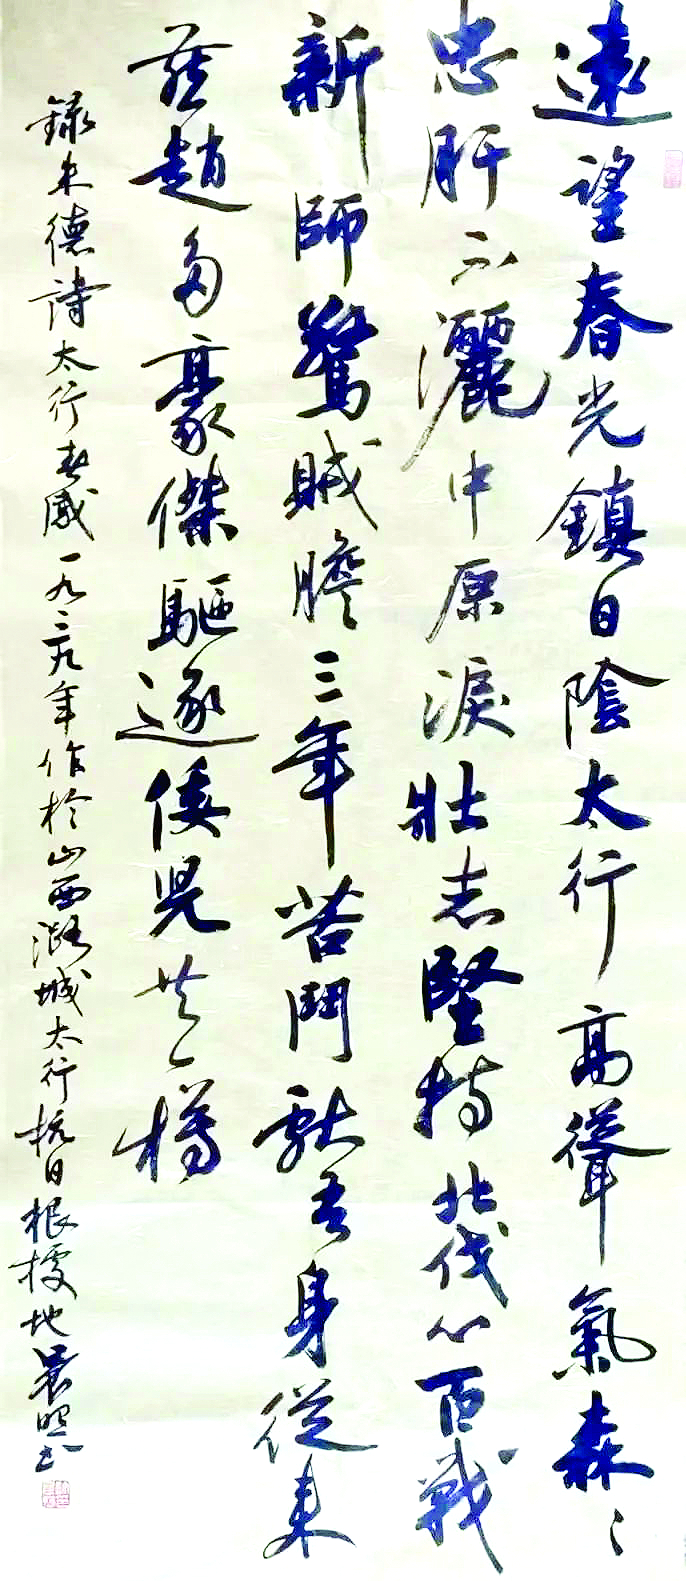 遠望春光鎮日陰太行高聳氣森〻
忠肝不灑中原淚壯志堅持北伐心百戰
新師驚賊膽三年苦鬥獻吾身從來
燕趙多豪傑驅逐倭兒共一樽
錄朱德詩太行春感一九三九年作於山西潞城太行抗日根據地晨照书